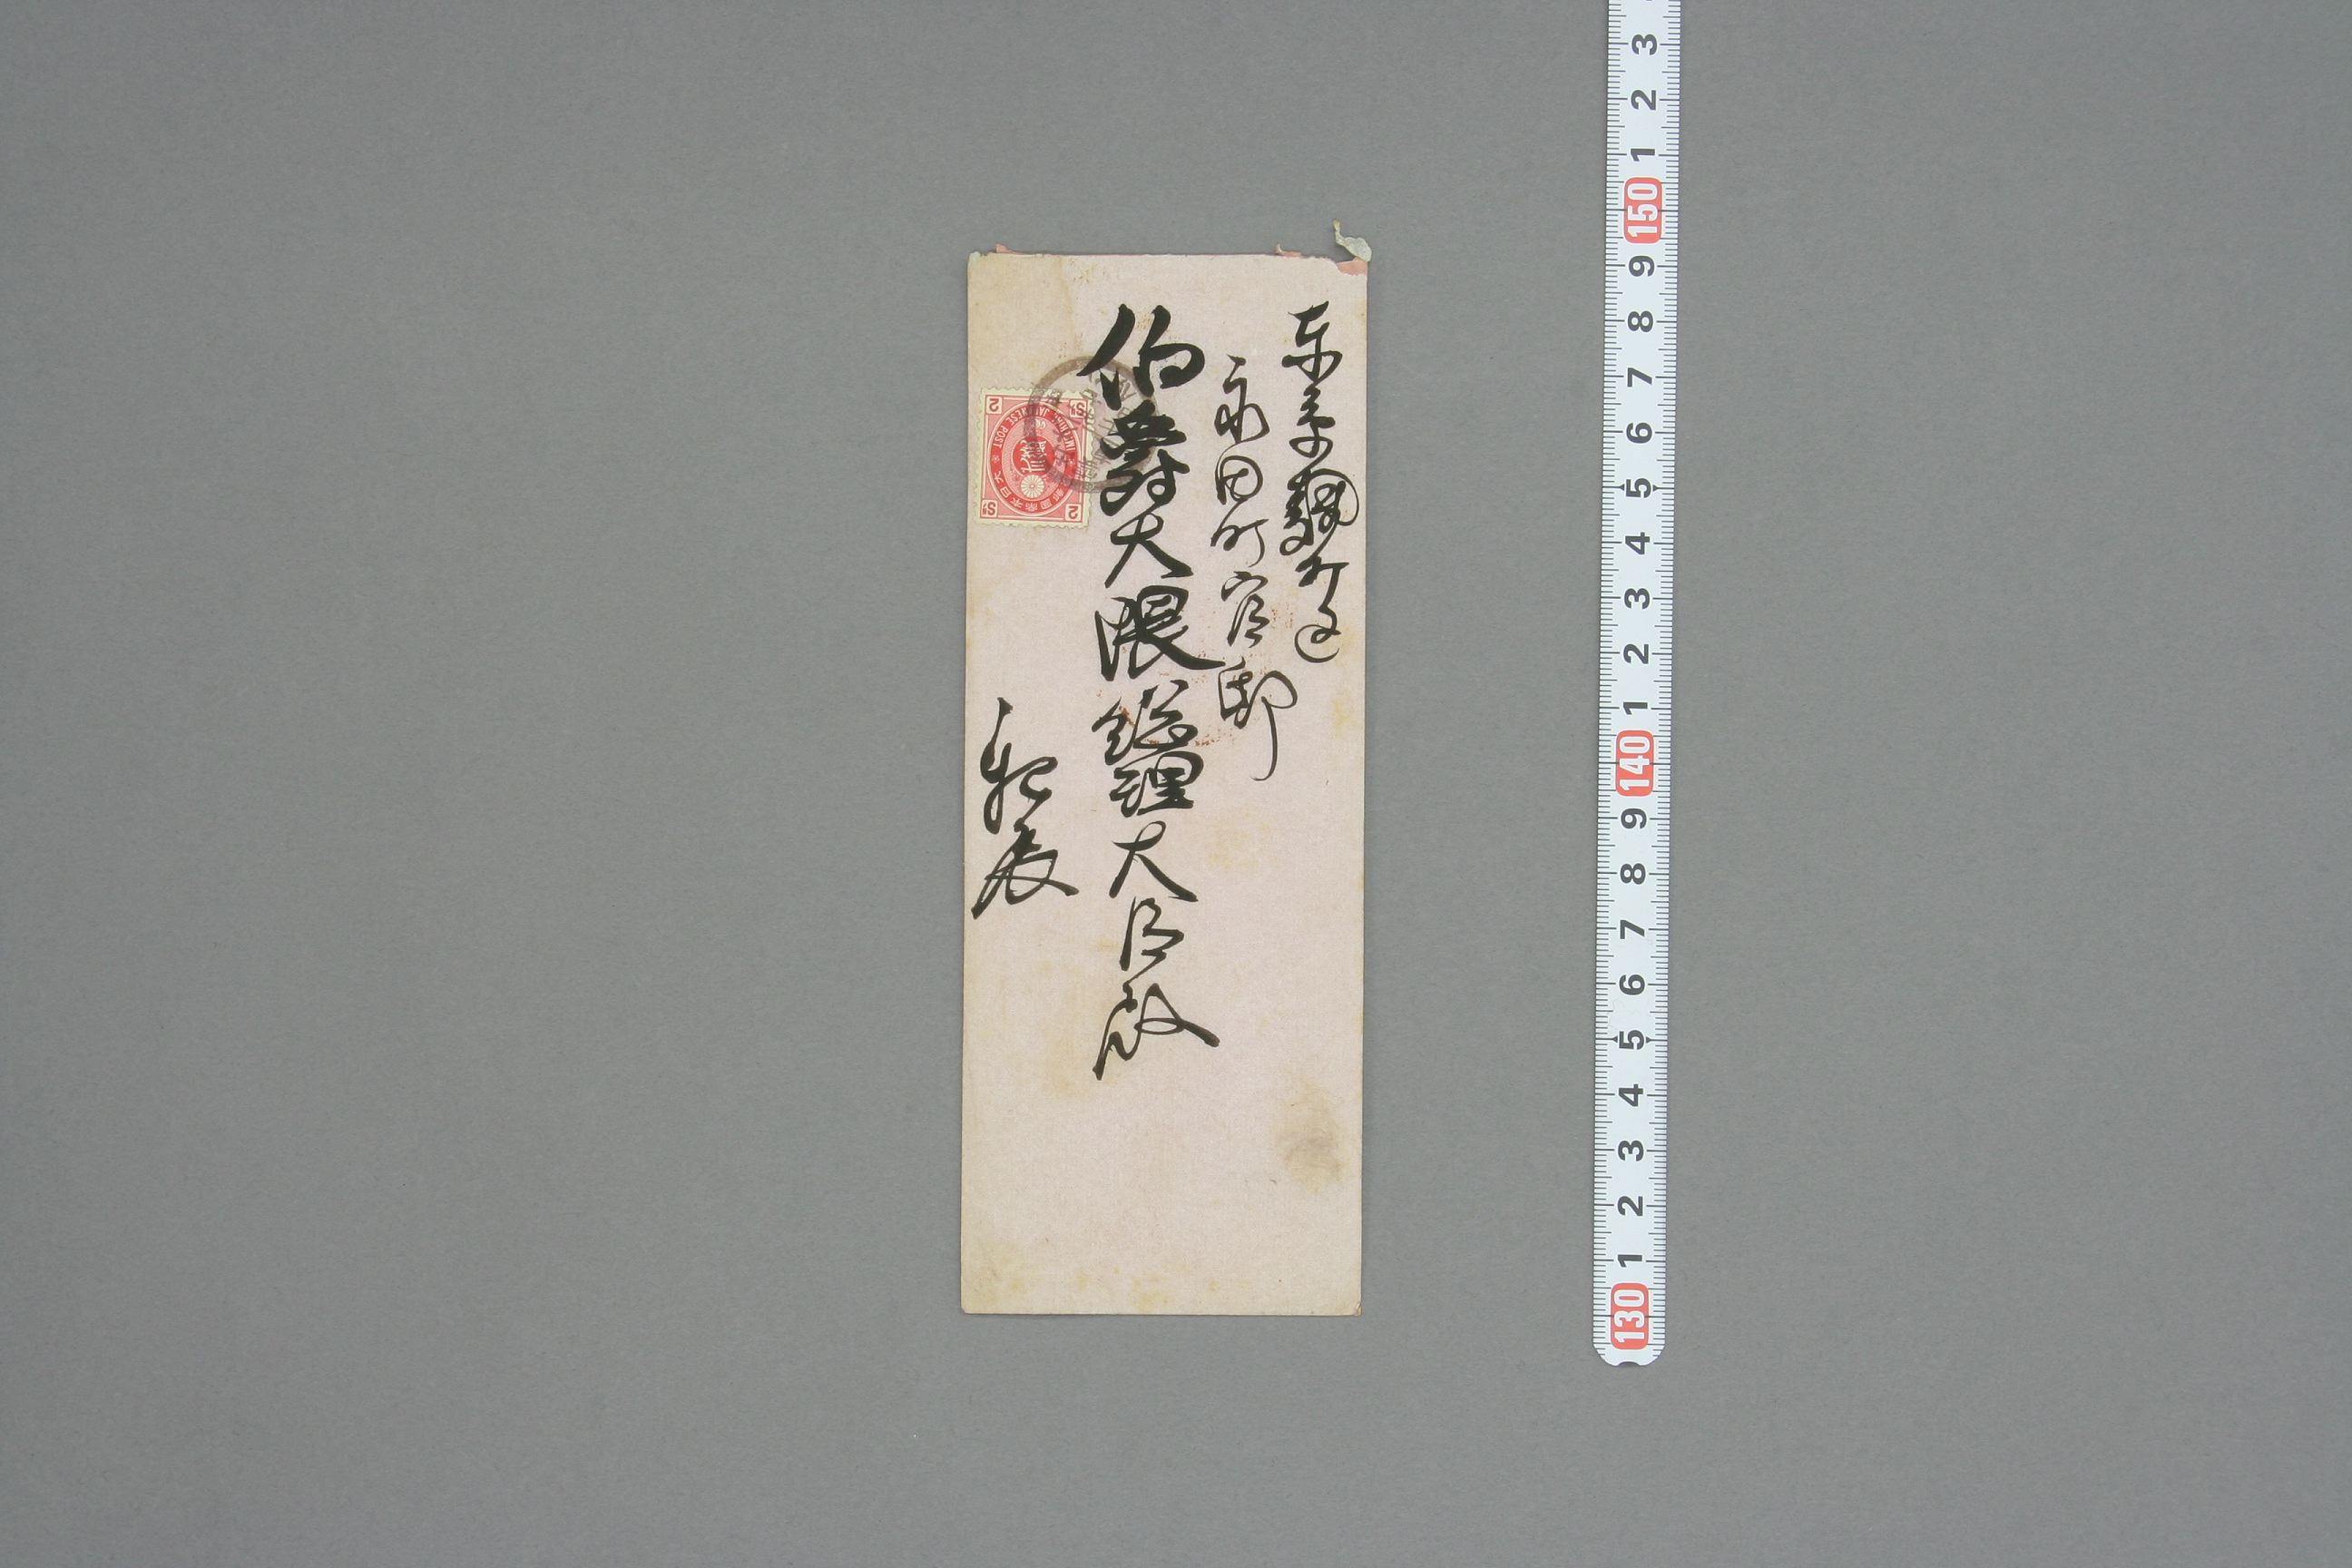 東京麹町区
永田町官邸
伯爵大隈総理大臣殿
親展
2 Sn
IMPERIAL JAPANESE POST
大日本帝国郵便
2 Sn
3
2
1
150
9
8
7
6
5
4
3
2
1
140
9
8
7
6
5
4
3
2
1
130